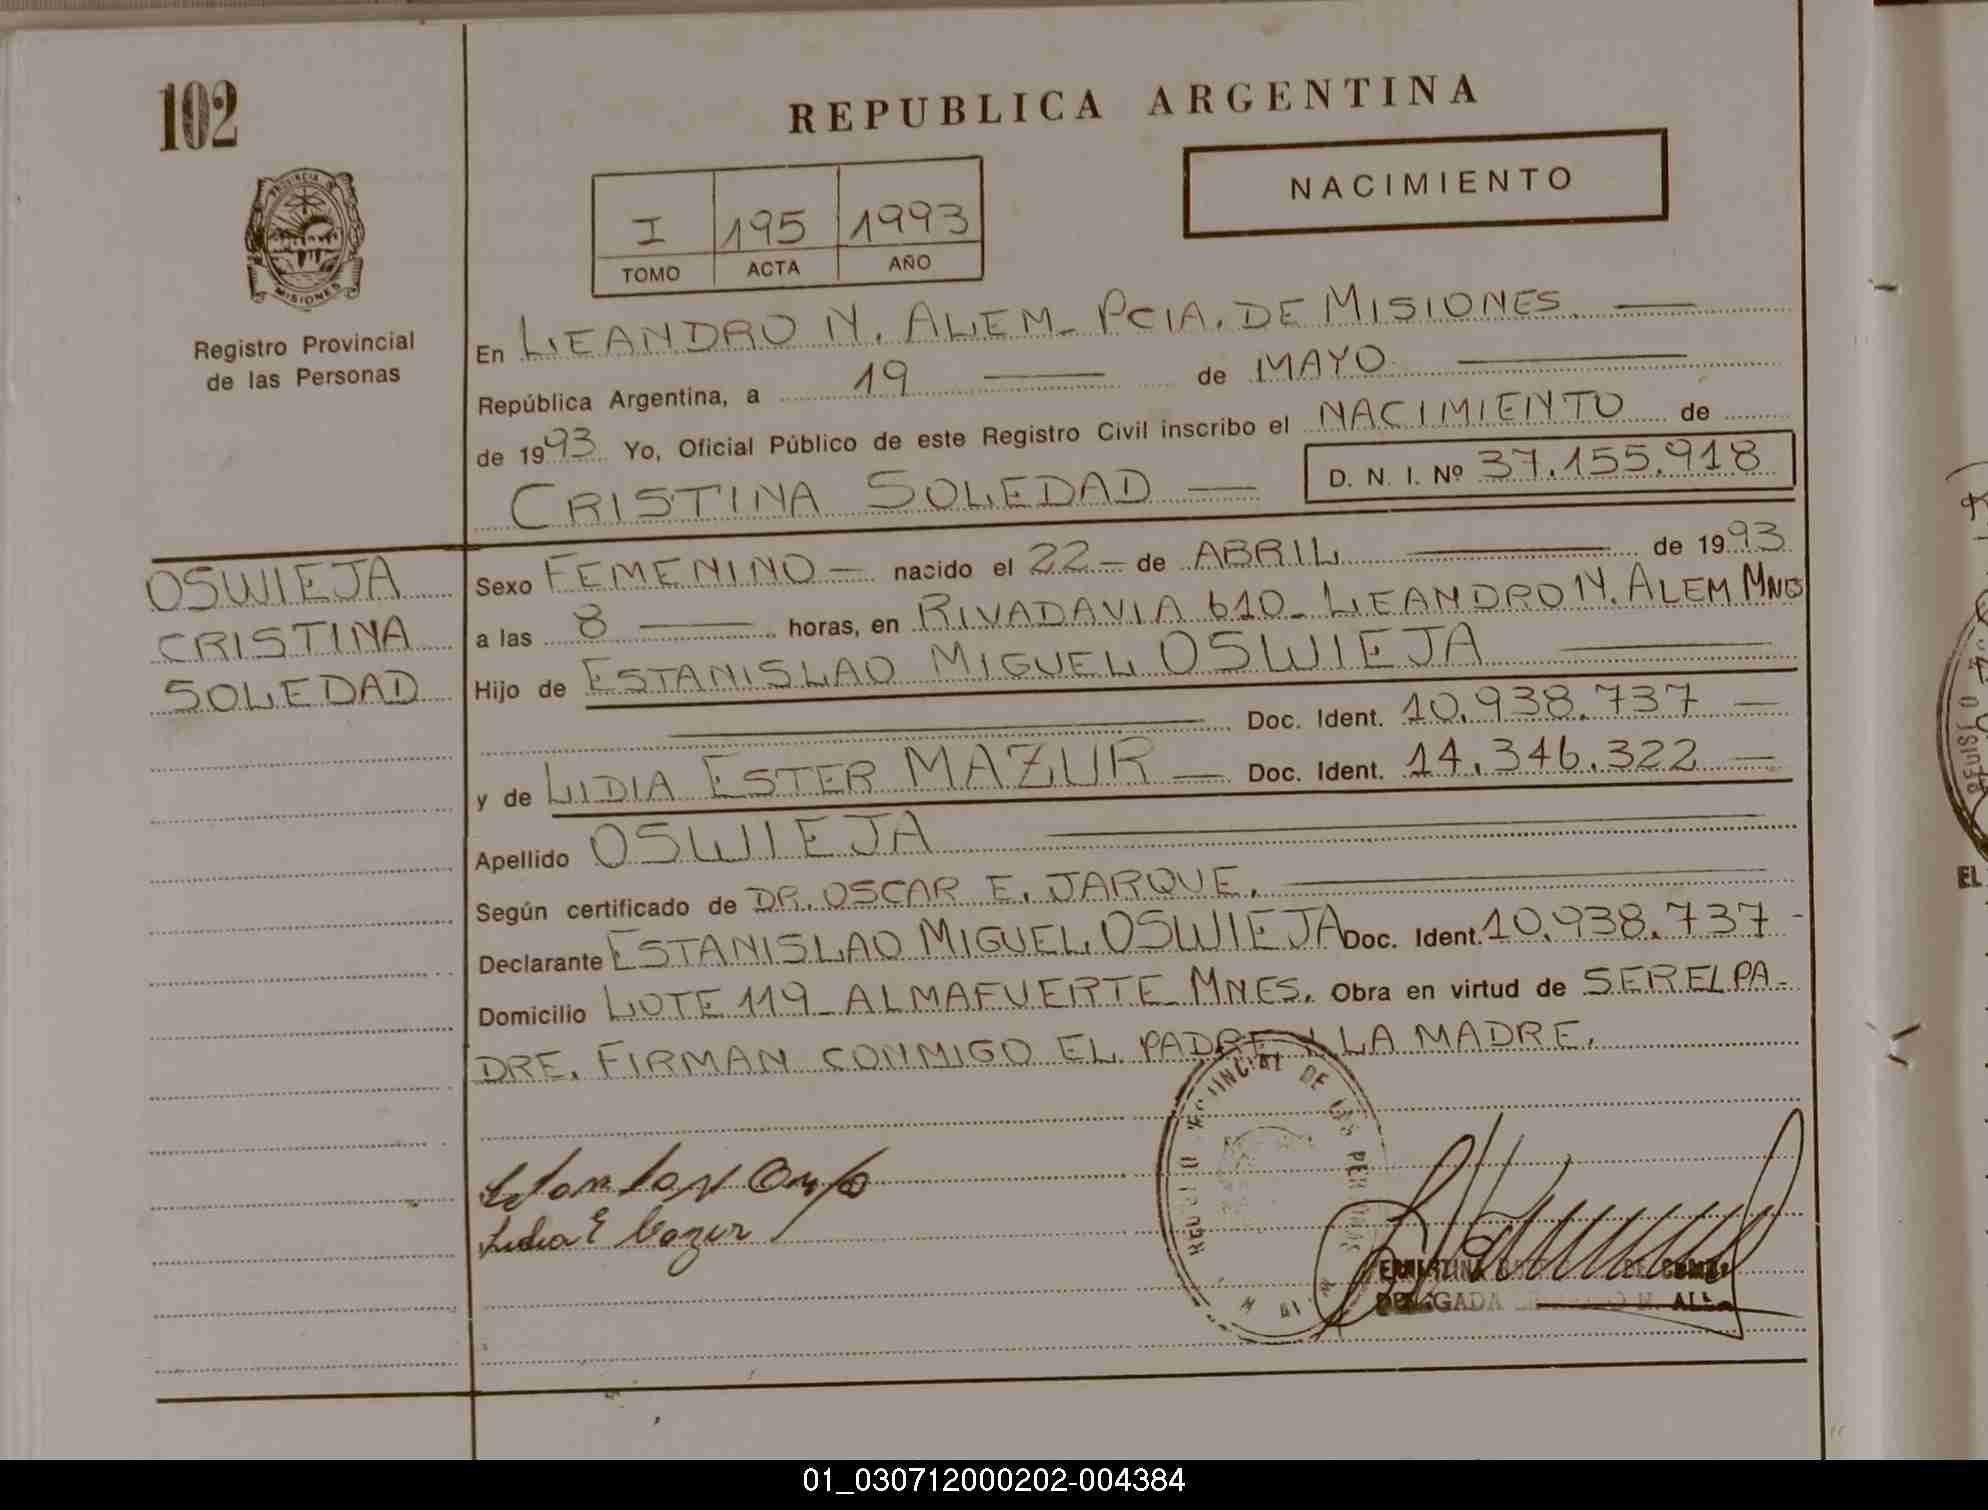 102
REPUBLICA ARGENTINA
NACIMIENTO
I 195 1993
TOMO ACTA AÑO
PROVINCIA DE
MISIONES
Registro Provincial
de las Personas
En LEANDRO N. ALEM - PCIA. DE MISIONES.
República Argentina, a 19 de MAYO
de 1993 Yo, Oficial Público de este Registro Civil inscribo el NACIMIENTO de
CRISTINA SOLEDAD — D. N. I. Nº 37.155.918
OSWIEJA
CRISTINA
SOLEDAD
Sexo FEMENINO — nacido el 22 — de ABRIL de 1993
a las 8 horas, en RIVADAVIA 610 - LEANDRO N. ALEM MNES
Hijo de ESTANISLAO MIGUEL OSWIEJA
Doc. Ident. 10.938.737 —
y de LIDIA ESTER MAZUR — Doc. Ident. 14.346.322 —
Apellido OSWIEJA
Según certificado de DR. OSCAR E. JARQUE.
Declarante ESTANISLAO MIGUEL OSWIEJA Doc. Ident. 10.938.737 -
Domicilio LOTE 119 - ALMAFUERTE - MNES. Obra en virtud de SER EL PA-
DRE. FIRMAN CONMIGO EL PADRE Y LA MADRE.
Lidia E Mazur
DE LAS
DELEGADA
N. AL
EL
01_030712000202-004384